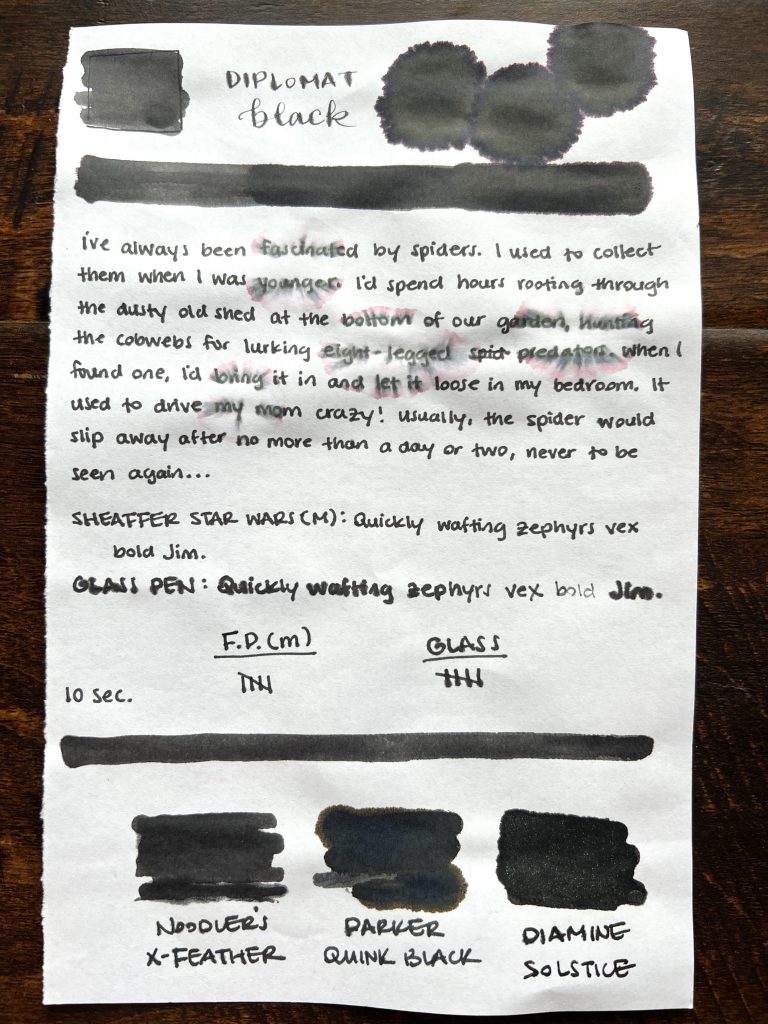 DIPLOMAT
black
i've always been fascinated by spiders. I used to collect
them when I was younger. I'd spend hours rooting through
the dusty old shed at the bottom of our garden, hunting
the cobwebs for lurking eight-legged spid predators. When I
found one, I'd bring it in and let it loose in my bedroom. It
used to drive my mom crazy! usually, the spider would
slip away after no more than a day or two, never to be
seen again...
SHEAFFER STAR WARS (M): Quickly wafting zephyrs vex
bold Jim.
GLASS PEN: Quickly wafting zephyrs vex bold Jim.
F.P. (m) GLASS
10 sec.
NOODLER'S PARKER DIAMINE
X-FEATHER QUINK BLACK SOLSTICE